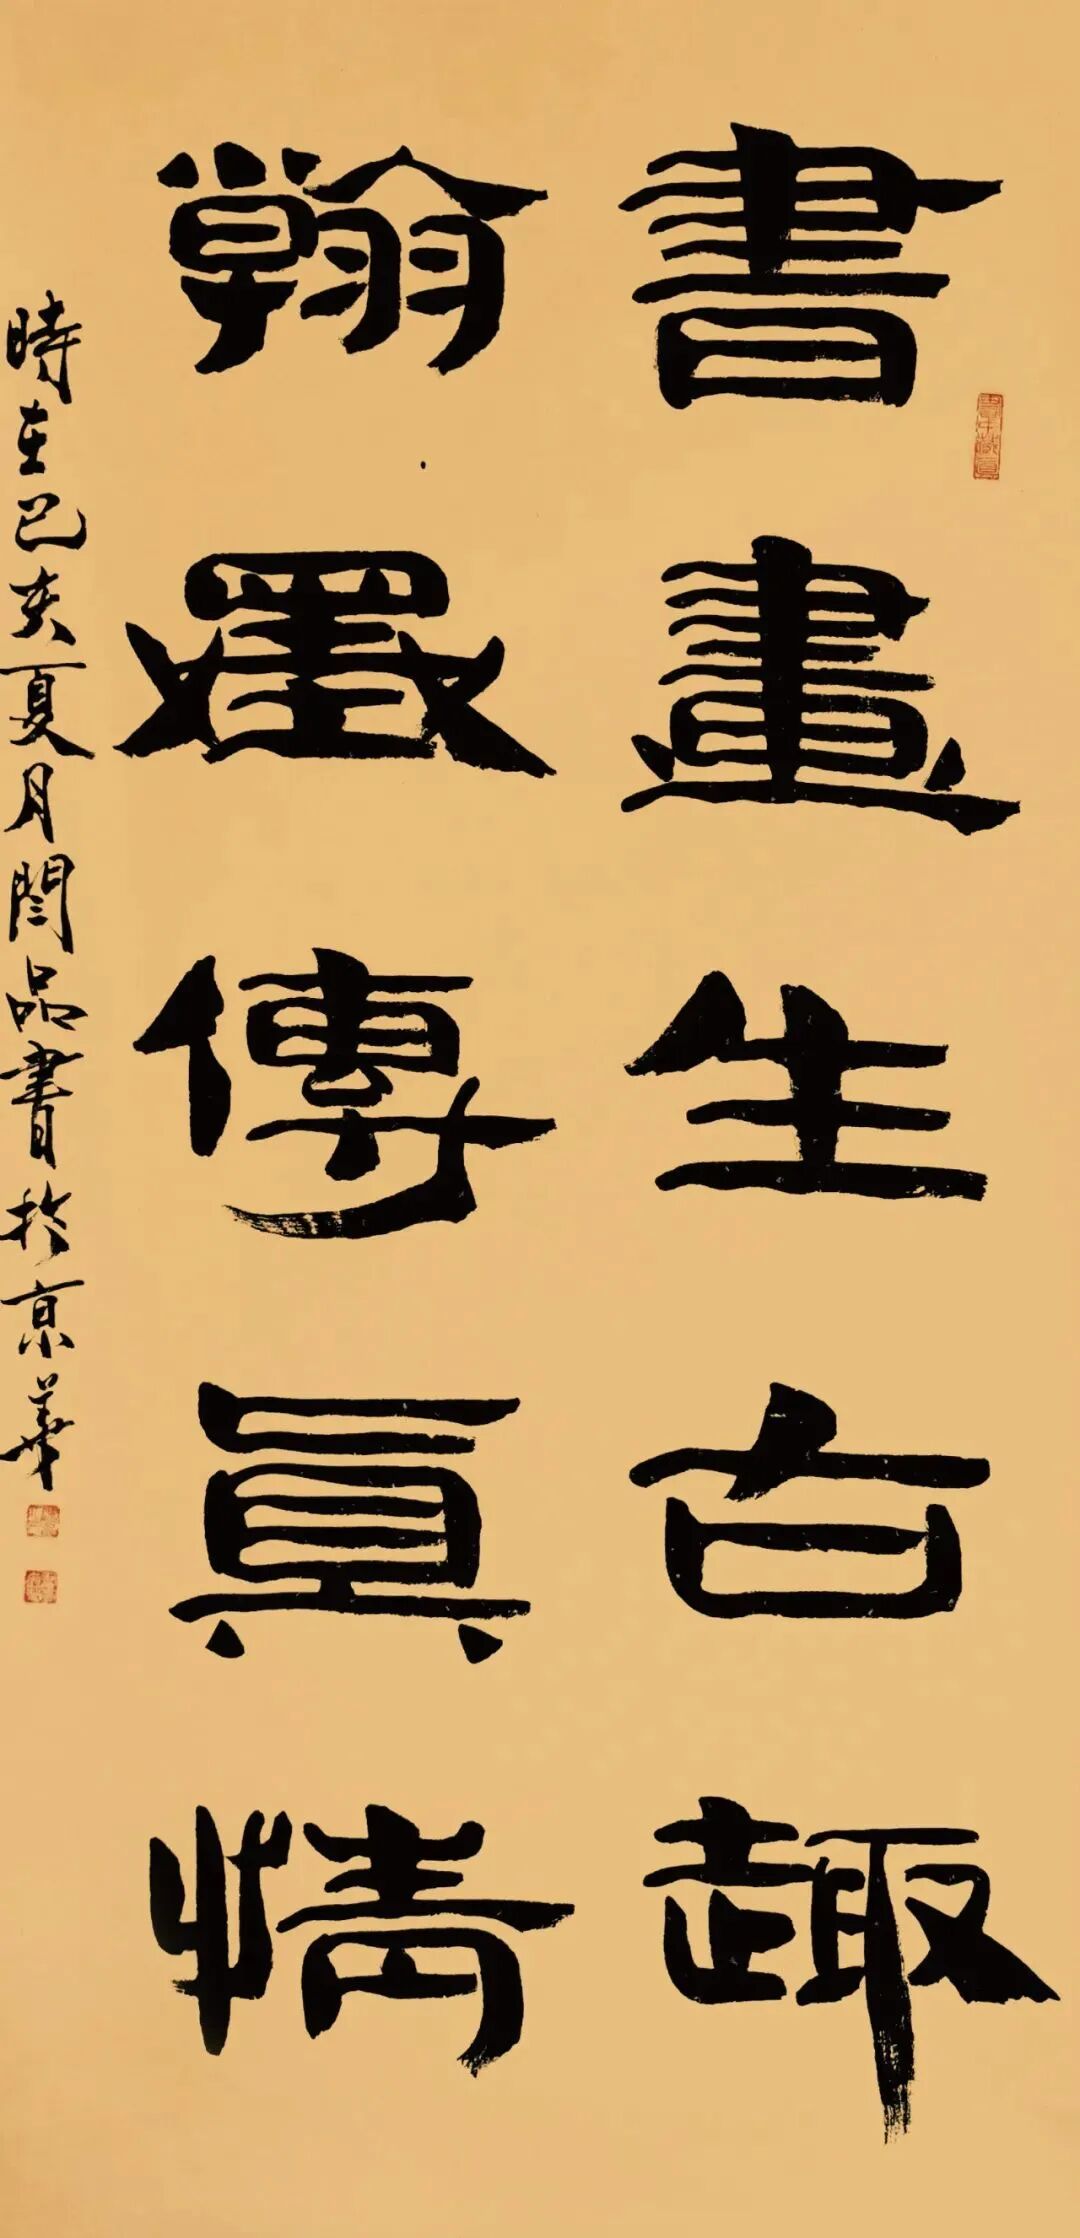 書畫生古趣
翰墨傳真情
時在己亥夏月閆品書於京華